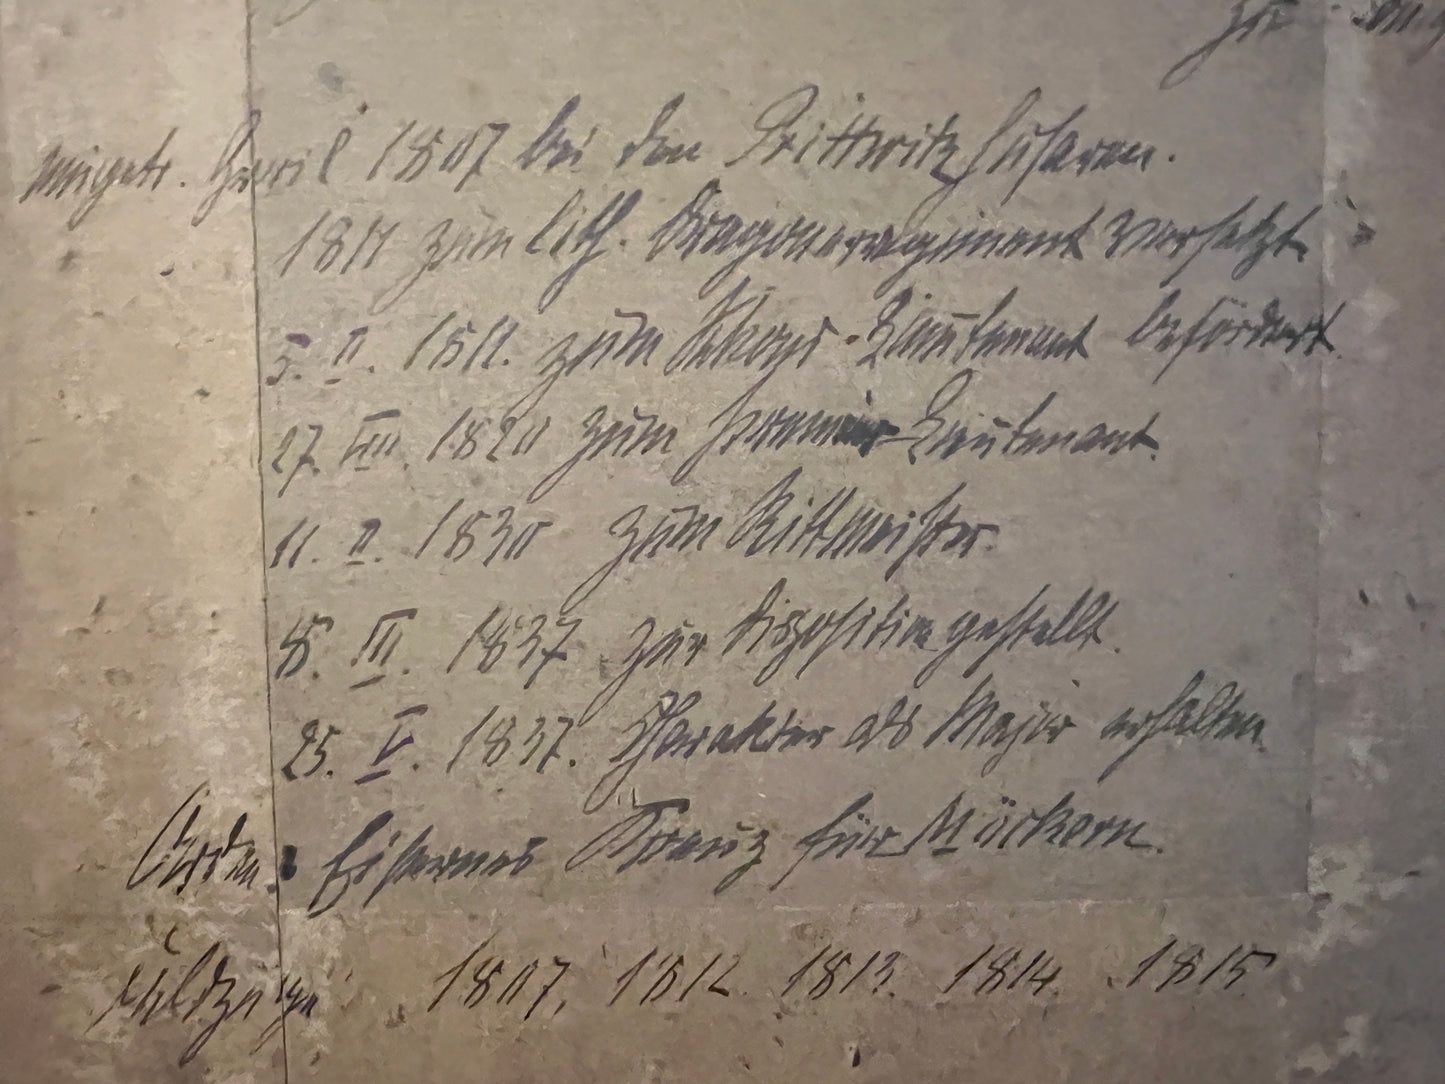 eingetr. April 1807 bei den Prittwitz Husaren.
zum lith. Dragonerregiment versetzt
5. II. 1811. zum Lieutenant befördert.
27. VIII. 1820 zum premier-Lieutenant.
11. II. 1830 zum Rittmeister.
8. III. 1837 zur Disposition gestellt.
25. V. 1837. Charakter als Major erhalten.
Orden: Eisernes Kreuz für Möckern.
Feldzüge 1807, 1812. 1813. 1814. 1815.